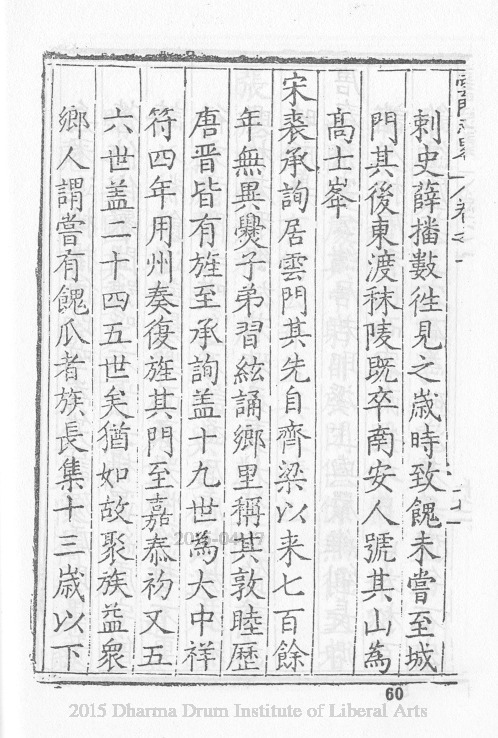 雲門志畧 卷之一
刺史薛播數徃見之歲時致餽未嘗至城
門其後東渡秣陵既卒南安人號其山為
高士峯
宋裘承詢居雲門其先自齊梁以来七百餘
年無異爨子弟習絃誦鄉里稱其敦睦歴
唐晋皆有旌至承詢盖十九世為大中祥
符四年用州奏復旌其門至嘉泰初又五
六世盖二十四五世矣猶如故聚族益衆
鄉人謂嘗有餽瓜者族長集十三歲以下
60
2015 Dharma Drum Institute of Liberal Arts